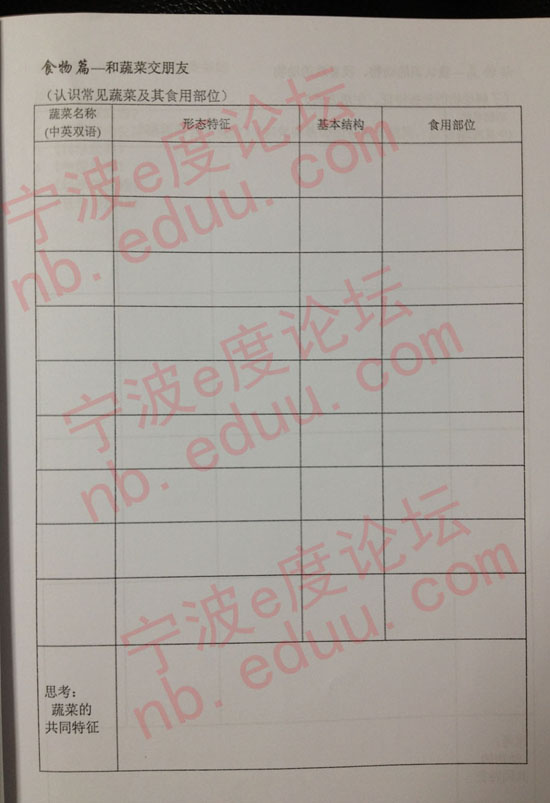 食物篇—和蔬菜交朋友
（认识常见蔬菜及其食用部位）
蔬菜名称
(中英双语)
形态特征
基本结构
食用部位
宁波e度论坛
nb. eduu. com
宁波e度论坛
nb. eduu. com
宁波e度论坛
nb. eduu. com
思考：
蔬菜的
共同特征